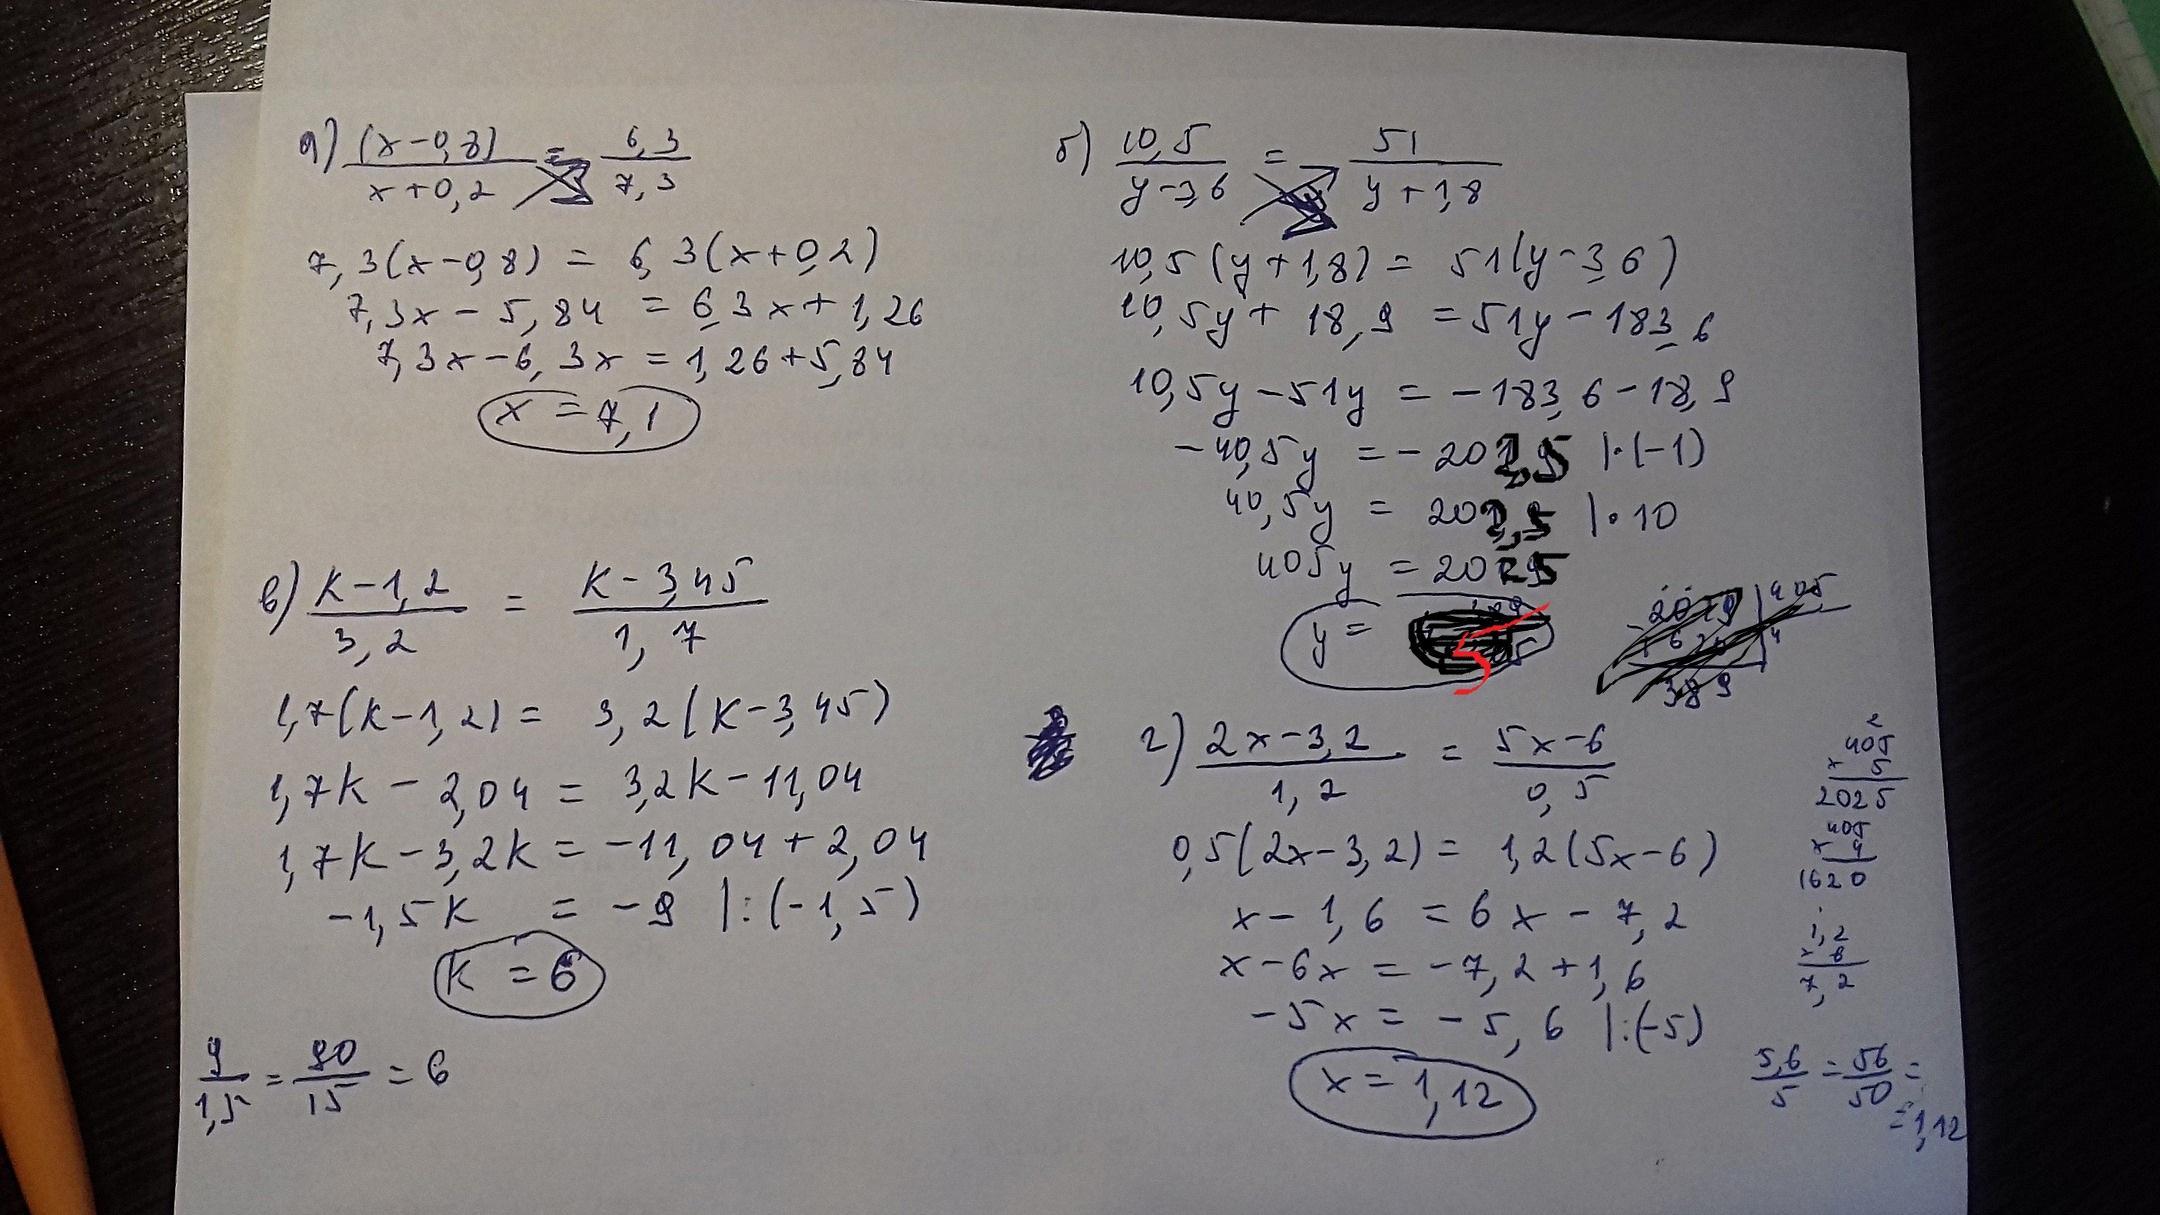 а) (x-0,8) / x+0,2 = 6,3 / 7,3
7,3(x-0,8) = 6,3(x+0,2)
7,3x - 5,84 = 6,3x + 1,26
7,3x - 6,3x = 1,26 + 5,84
x = 7,1
б) 10,5 / y-3,6 = 51 / y+1,8
10,5(y+1,8) = 51(y-3,6)
10,5y + 18,9 = 51y - 183,6
10,5y - 51y = -183,6 - 18,9
-40,5y = -202,5 |·(-1)
40,5y = 202,5 |·10
405y = 2025
y = 5
в) k-1,2 / 3,2 = k-3,45 / 1,7
1,7(k-1,2) = 3,2(k-3,45)
1,7k - 2,04 = 3,2k - 11,04
1,7k - 3,2k = -11,04 + 2,04
-1,5k = -9 |:(-1,5)
k = 6
9 / 1,5 = 90 / 15 = 6
г) 2x-3,2 / 1,2 = 5x-6 / 0,5
0,5(2x-3,2) = 1,2(5x-6)
x - 1,6 = 6x - 7,2
x - 6x = -7,2 + 1,6
-5x = -5,6 |:(-5)
x = 1,12
2
405
x 5
2025
405
x 4
1620
1
1,2
x 6
7,2
5,6 / 5 = 56 / 50 =
= 1,12